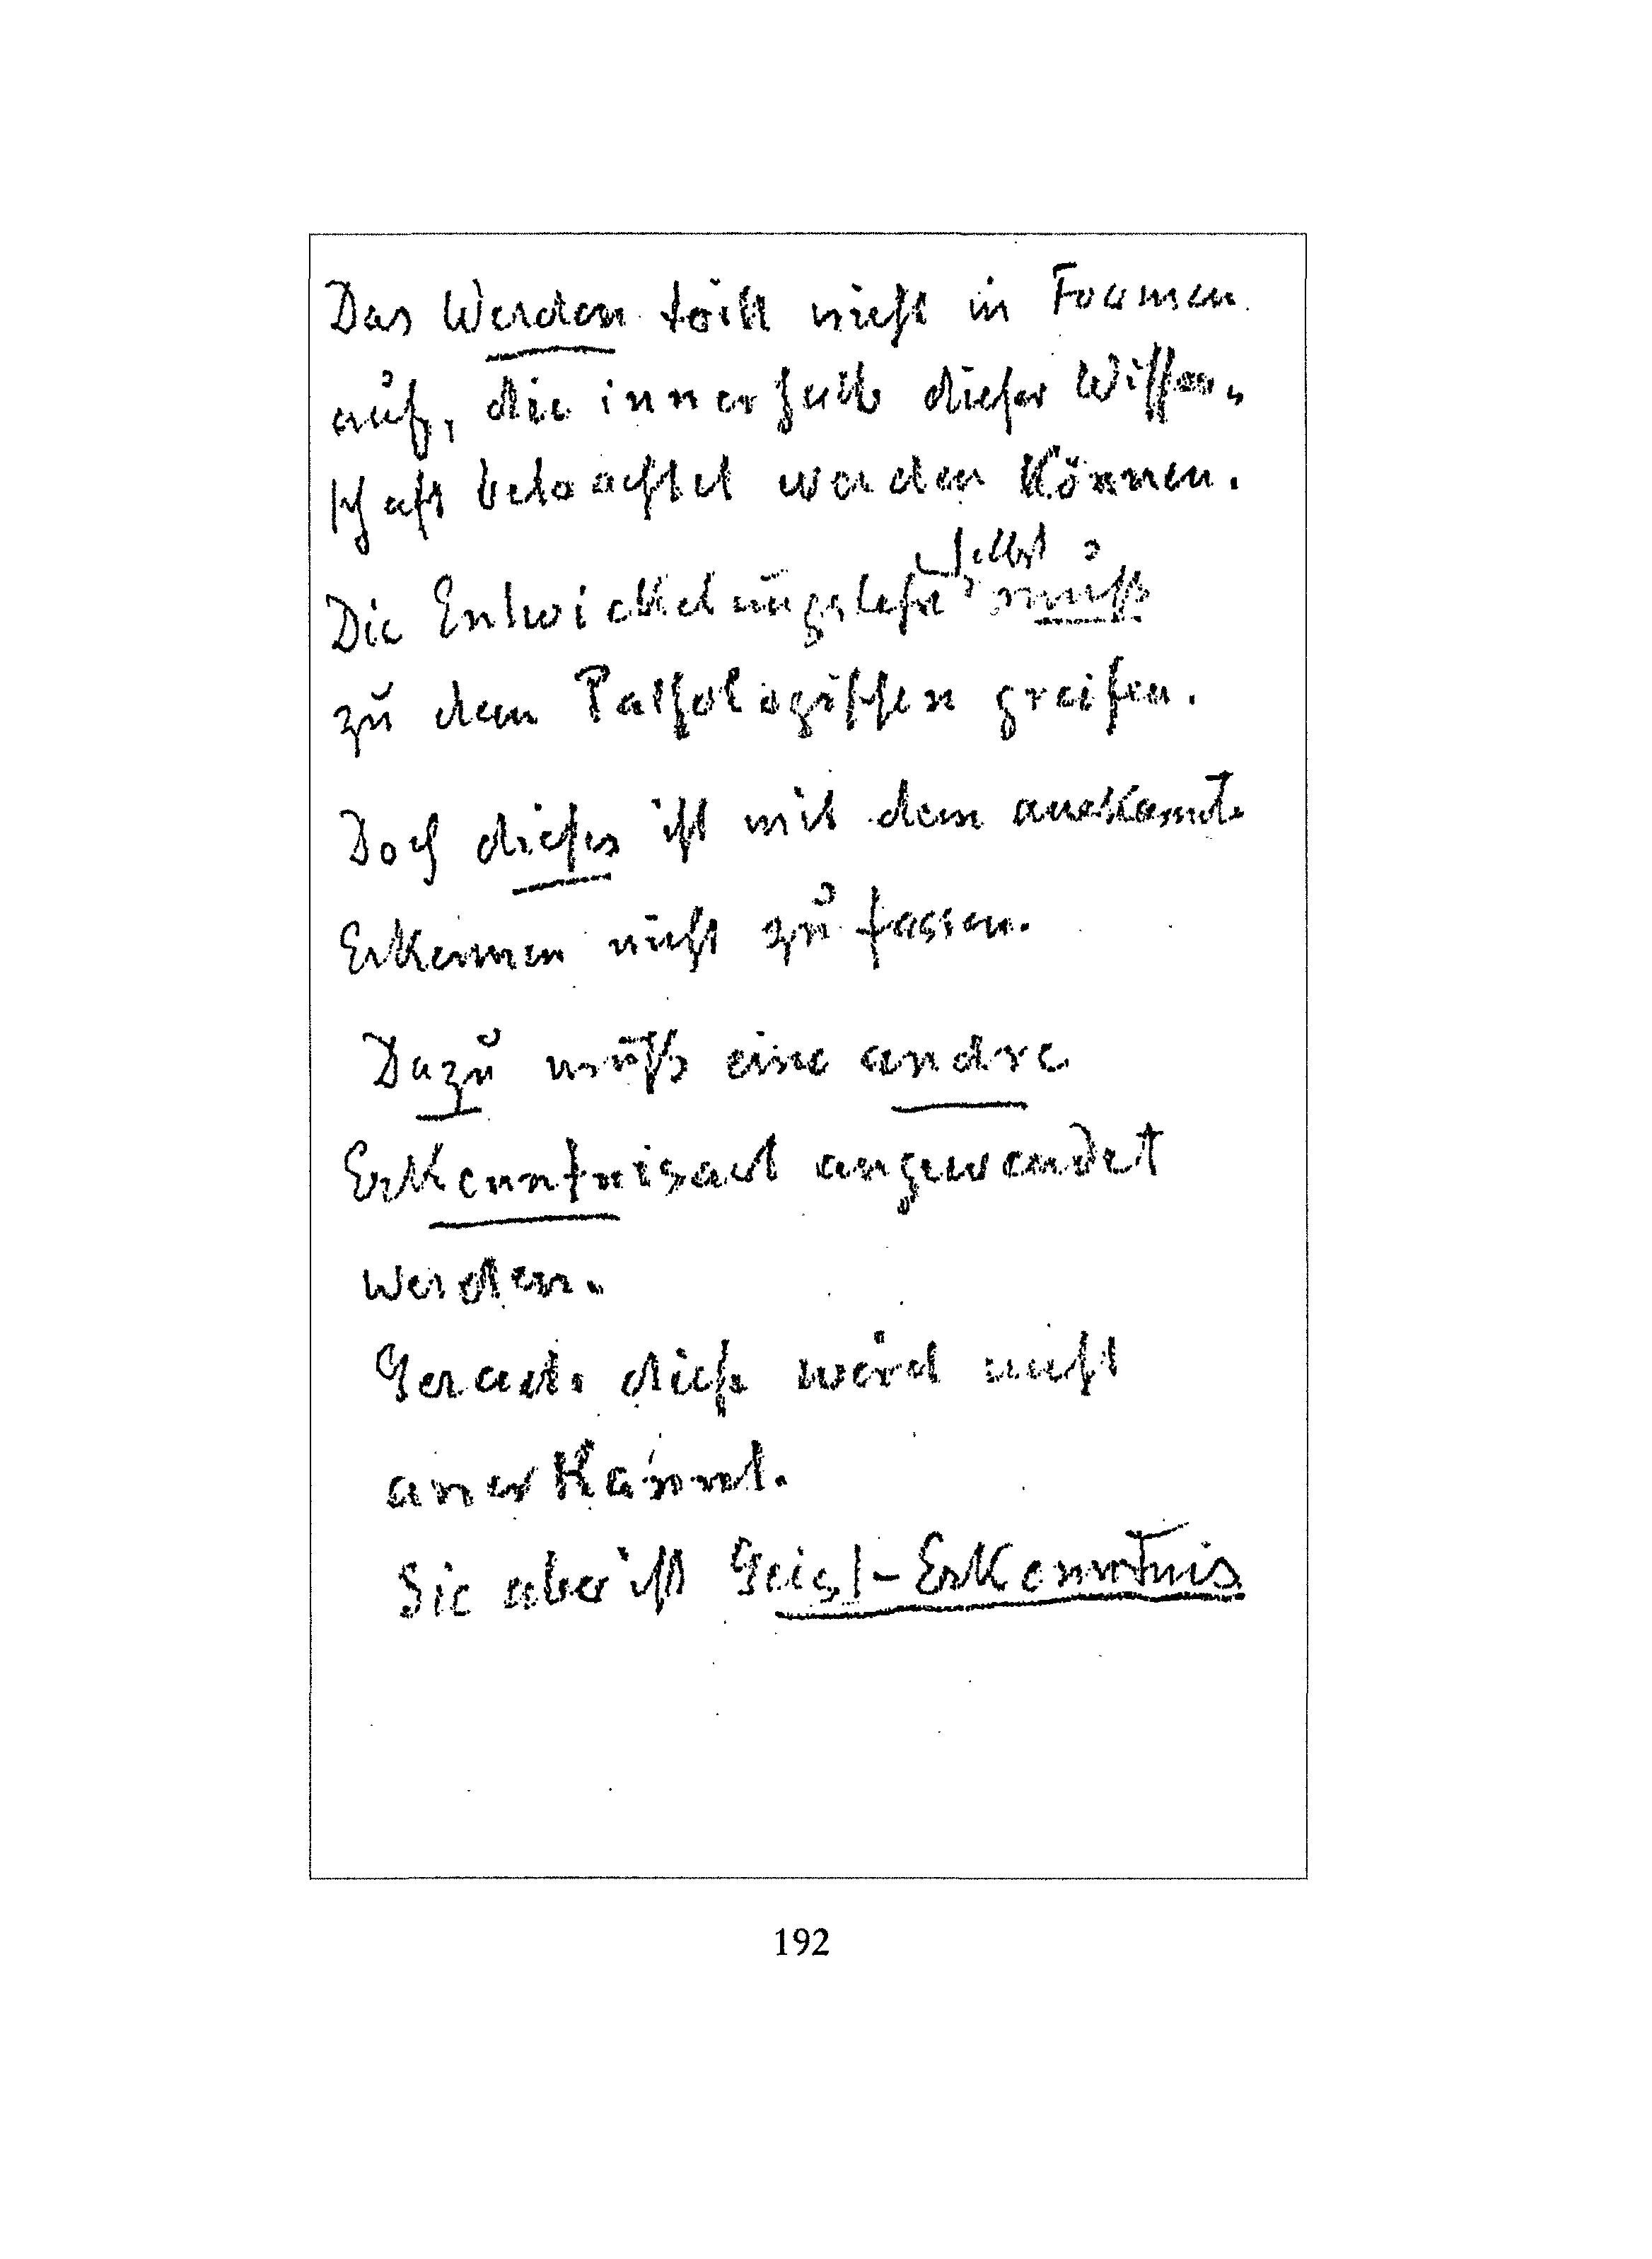 Das Werden tritt nicht in Formen
auf, die innerhalb dieser Wissen-
schaft betrachtet werden können.
selbst
Die Entwickelungslehre muß
zu dem Pathologischen greifen.
Doch dieses ist mit dem anerkannten
Erkennen nicht zu fassen.
Dazu muß eine andre
Erkenntnisart angewendet
werden.
Gerade diese wird nicht
anerkannt.
Sie aber ist Geist-Erkenntnis
192